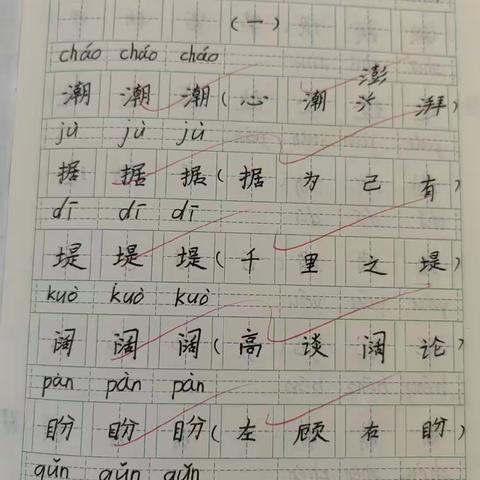 (一)
cháo cháo cháo
潮 潮 潮(心 潮 澎 湃)
jù jù jù
据 据 据(据 为 己 有)
dī dī dī
堤 堤 堤(千 里 之 堤)
kuò kuò kuò
阔 阔 阔(高 谈 阔 论)
pàn pàn pàn
盼 盼 盼(左 顾 右 盼)
gǔn gǔn gǔn